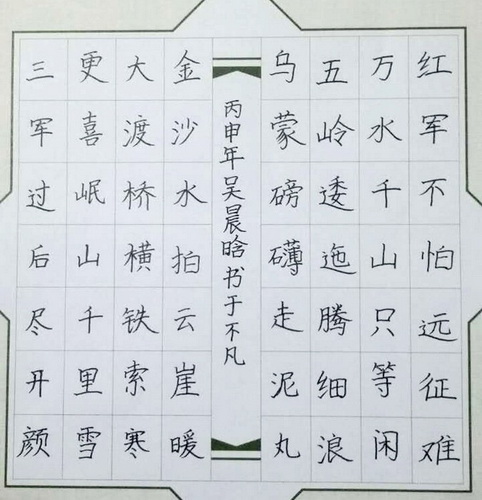 红军不怕远征难
万水千山只等闲
五岭逶迤腾细浪
乌蒙磅礴走泥丸
丙申年吴晨晗书于不凡
金沙水拍云崖暖
大渡桥横铁索寒
更喜岷山千里雪
三军过后尽开颜